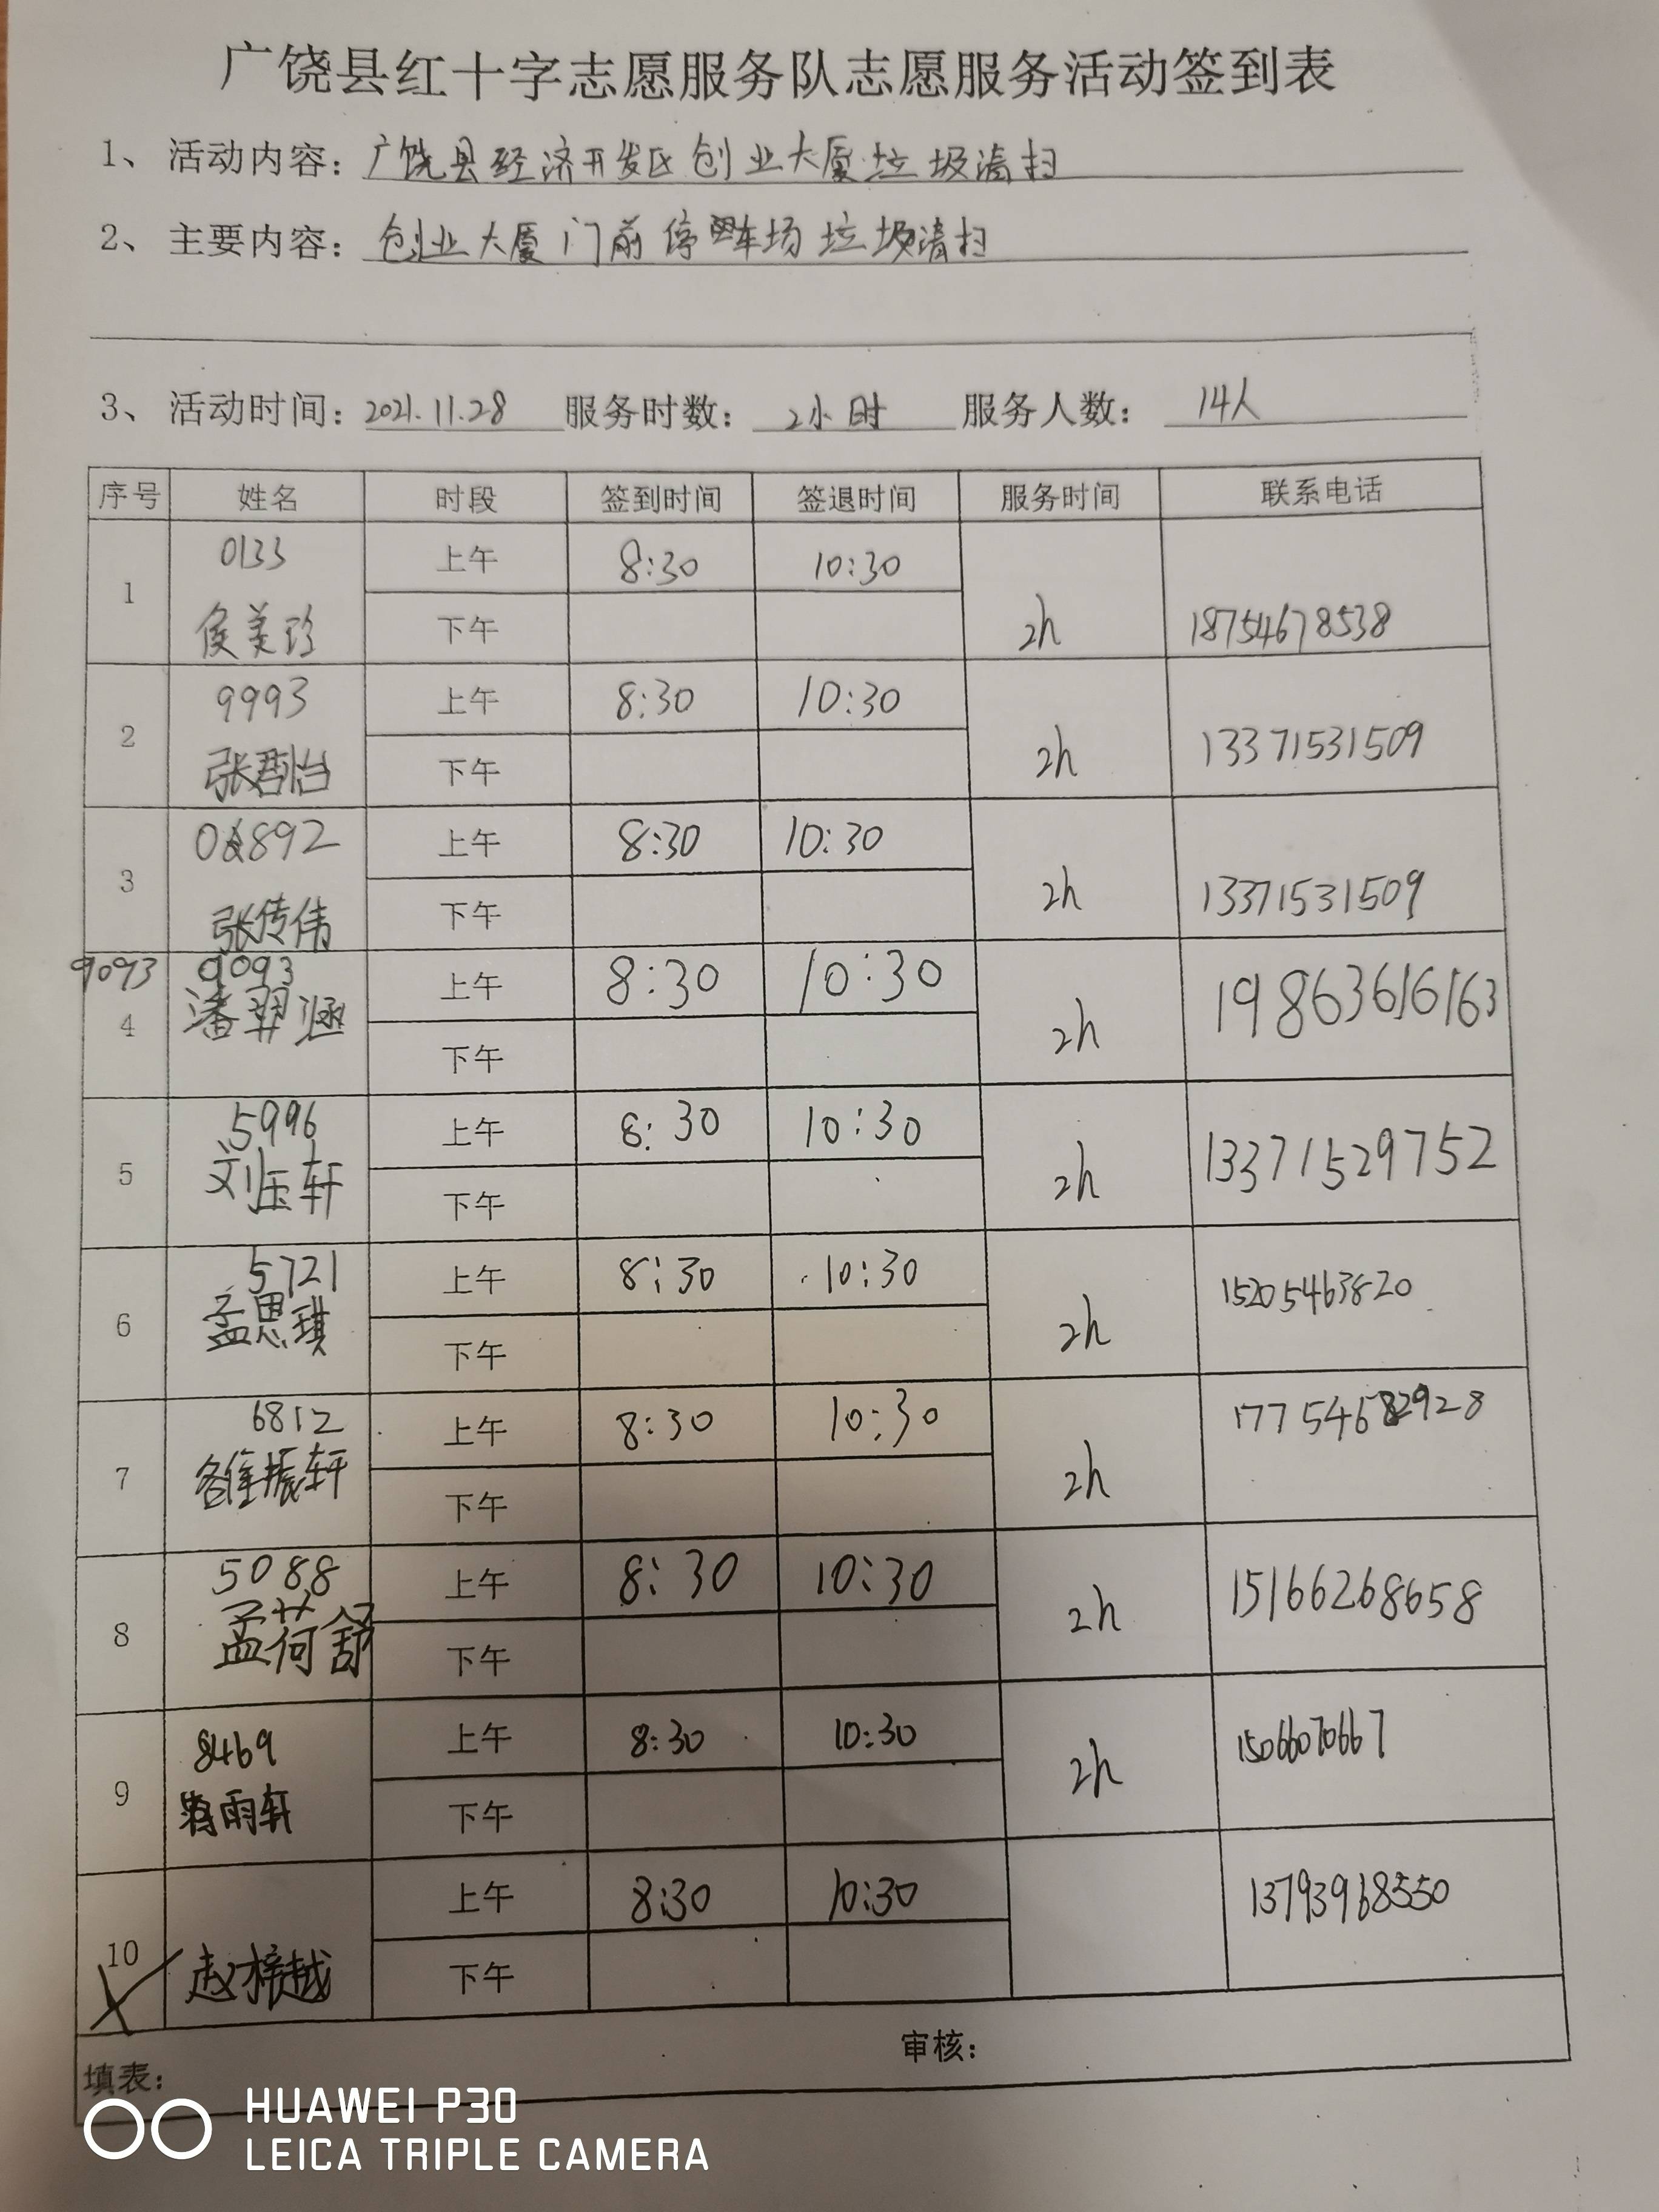 广饶县红十字志愿服务队志愿服务活动签到表
1、活动内容：广饶县经济开发区创业大厦垃圾清扫
2、主要内容：创业大厦门前停车场垃圾清扫
3、活动时间：2021.11.28 服务时数：2小时 服务人数：14人
序号 姓名 时段 签到时间 签退时间 服务时间 联系电话
1 0133 侯美玲 上午 8:30 10:30 2h 18754678538
下午
2 9993 张君怡 上午 8:30 10:30 2h 13371531509
下午
3 892 张传伟 上午 8:30 10:30 2h 13371531509
下午
9093
4 9093 潘羿涵 上午 8:30 10:30 2h 19863616163
下午
5 5996 刘玉轩 上午 8:30 10:30 2h 13371529752
下午
6 5721 孟思琪 上午 8:30 10:30 2h 15205463820
下午
7 6812 振轩 上午 8:30 10:30 2h 17754682928
下午
8 5088 孟荷舒 上午 8:30 10:30 2h 15166268658
下午
9 8469 雨轩 上午 8:30 10:30 2h 15066070667
下午
10 赵梓越 上午 8:30 10:30 13793968550
下午
填表： 审核：
HUAWEI P30
LEICA TRIPLE CAMERA